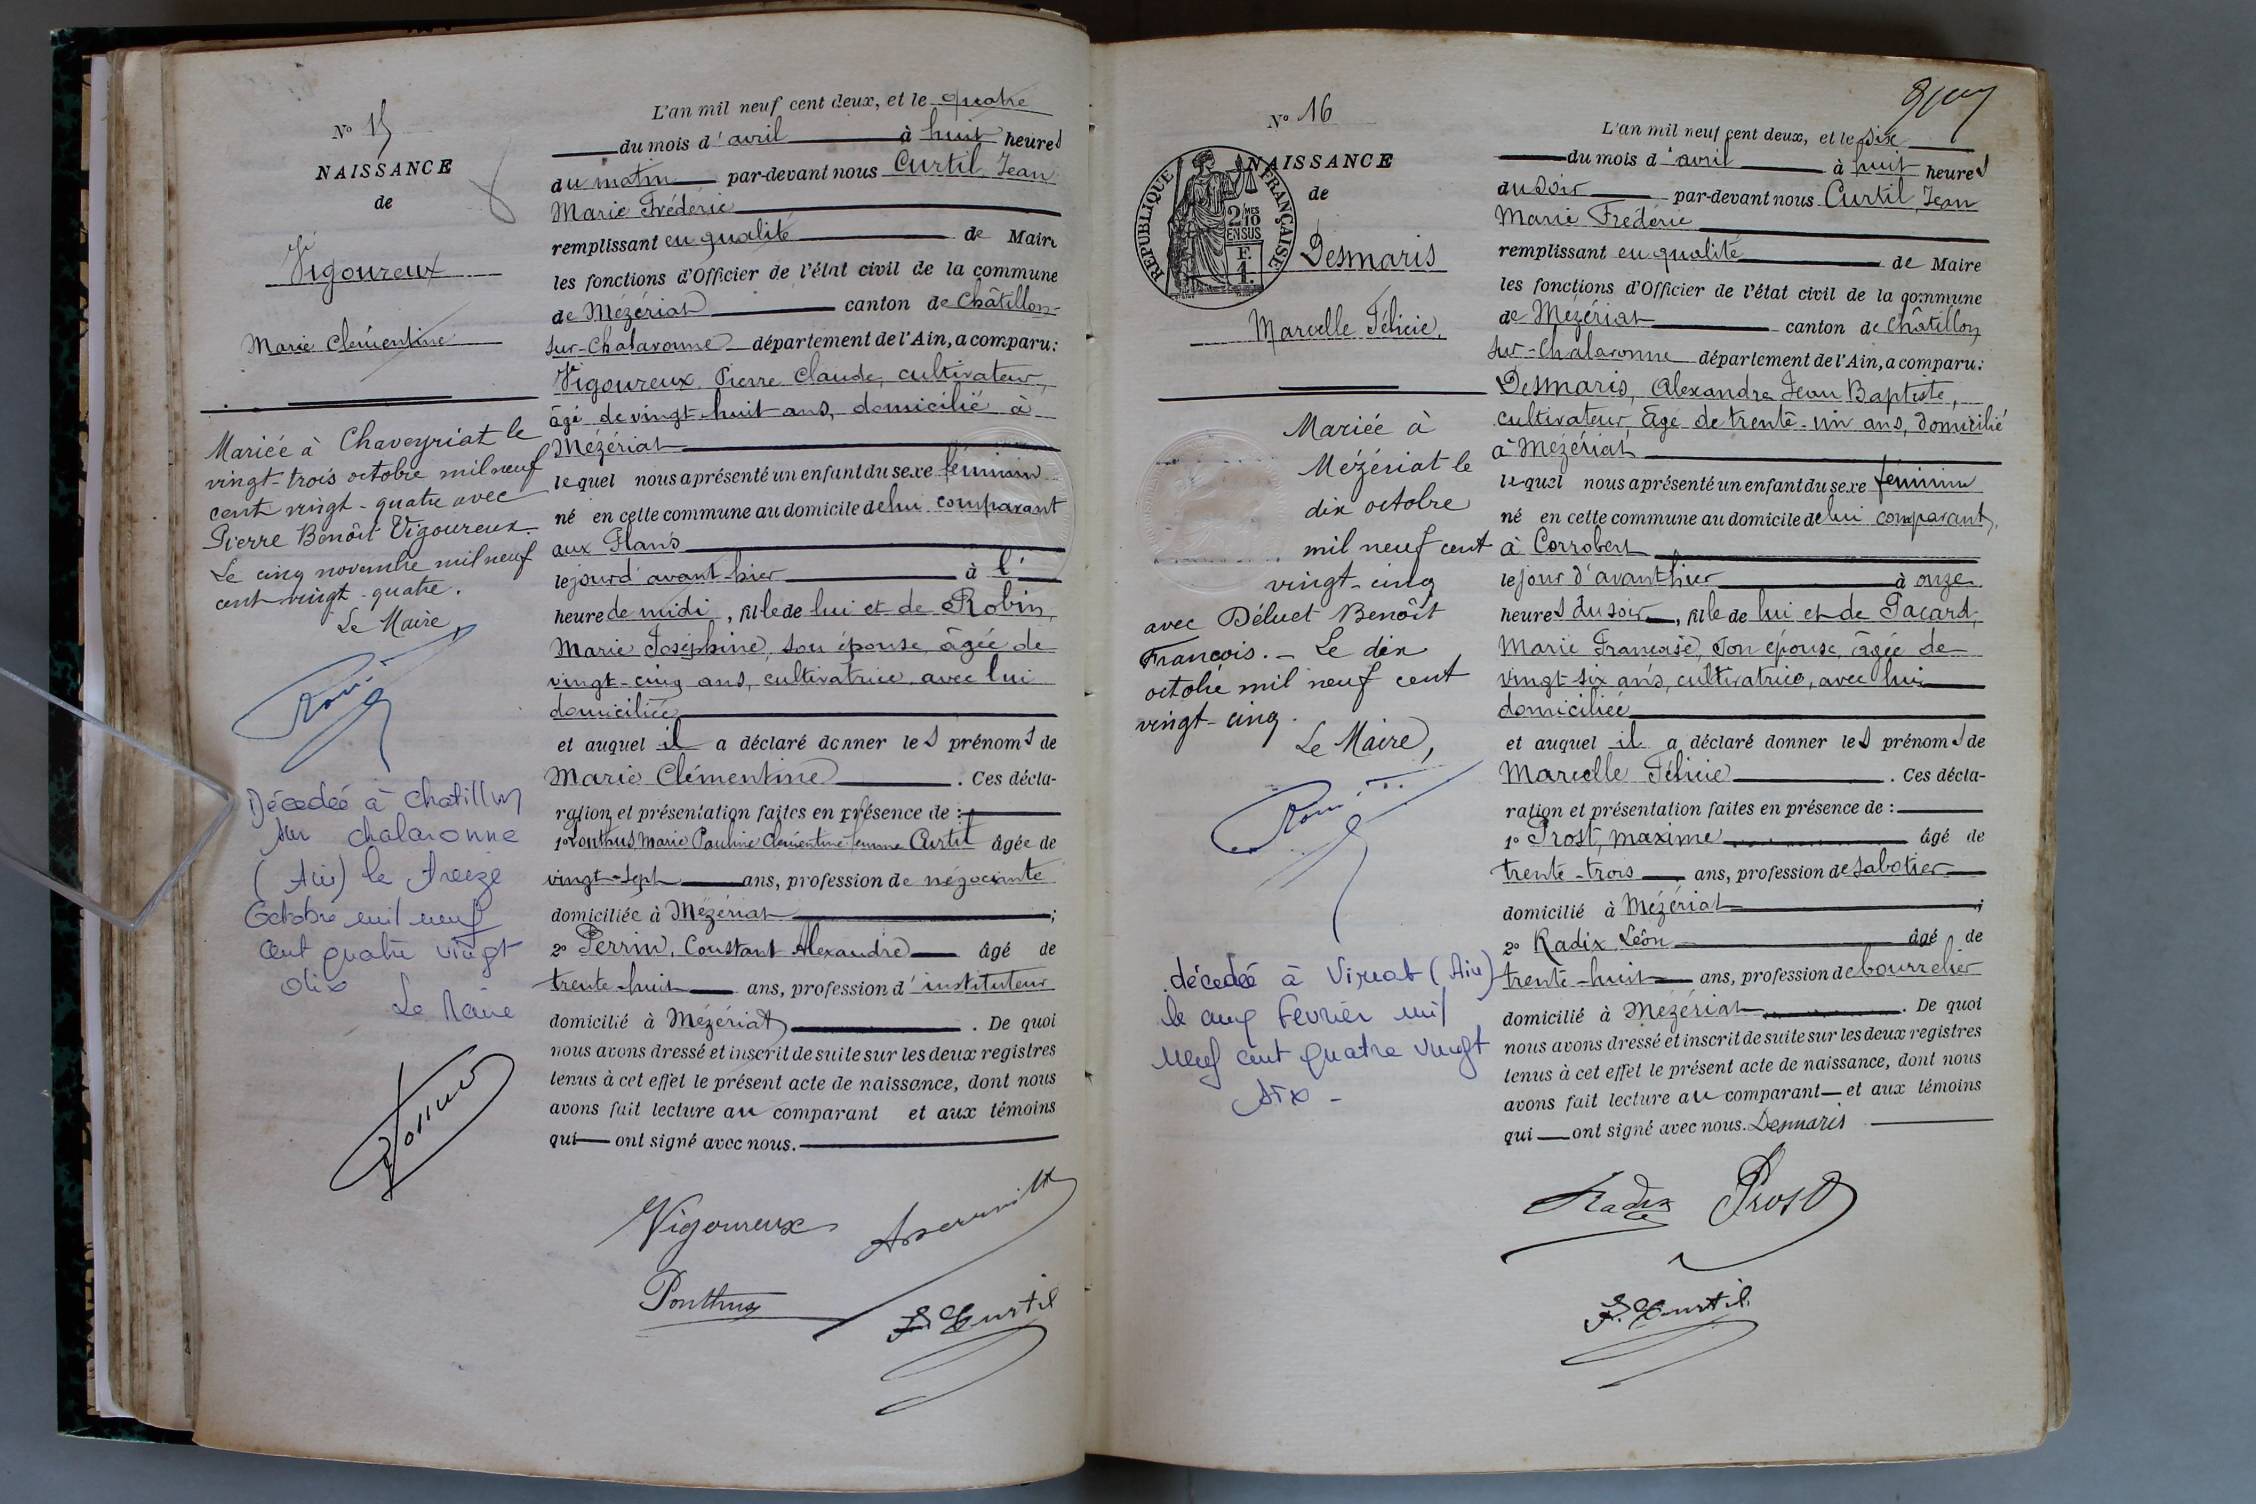 N° 15
NAISSANCE
de
Vigoureux
Marie Clémentine
Mariée à Chaveyriat le
vingt-trois octobre mil neuf
cent vingt-quatre avec
Pierre Benoît Vigoureux.
Le cinq novembre mil neuf
cent vingt-quatre.
Le Maire,
Décédée à Chatillon
sur chalaronne
(Ain) le treize
Octobre mil neuf
cent quatre vingt
dix
Le Maire
L'an mil neuf cent deux, et le quatre
du mois d'avril à huit heures
du matin par-devant nous Curtil, Jean
Marie Frédéric
remplissant en qualité de Maire
les fonctions d'Officier de l'état civil de la commune
de Mézériat canton de Châtillon-
sur-Chalaronne département de l'Ain, a comparu:
Vigoureux, Pierre Claude, cultivateur,
âgé de vingt-huit ans, domicilié à
Mézériat
lequel nous a présenté un enfant du sexe féminin
né en cette commune au domicile de lui comparant
aux Flans
le jour d'avant-hier à l'
heure de midi, fille de lui et de Robin,
Marie Joséphine, son épouse, âgée de
vingt-cinq ans, cultivatrice, avec lui
domiciliée
et auquel il a déclaré donner les prénoms de
Marie Clémentine. Ces décla-
ration et présentation faites en présence de :
1° Ponthus Marie Pauline Clémentine femme Curtil âgée de
vingt-sept ans, profession de négociante
domiciliée à Mézériat ;
2° Perrin, Constant Alexandre âgé de
trente-huit ans, profession d'instituteur
domicilié à Mézériat. De quoi
nous avons dressé et inscrit de suite sur les deux registres
tenus à cet effet le présent acte de naissance, dont nous
avons fait lecture au comparant et aux témoins
qui ont signé avec nous.
Vigoureux
Ponthus
F. Curtil
N° 16
NAISSANCE
de
RÉPUBLIQUE FRANÇAISE
2/10 MES
EN SUS
F.
1.
Desmaris
Marcelle Félicie.
Mariée à
Mézériat le
dix octobre
mil neuf cent
vingt-cinq
avec Déluet Benoît
François. - Le dix
octobre mil neuf cent
vingt-cinq.
Le Maire,
décédée à Viriat (Ain)
le cinq Février mil
neuf cent quatre vingt
dix -
L'an mil neuf cent deux, et le six
du mois d'avril à huit heures
du soir par-devant nous Curtil, Jean
Marie Frédéric
remplissant en qualité de Maire
les fonctions d'Officier de l'état civil de la commune
de Mézériat canton de Châtillon
sur-Chalaronne département de l'Ain, a comparu:
Desmaris, Alexandre Jean Baptiste,
cultivateur, âgé de trente-un ans, domicilié
à Mézériat
lequel nous a présenté un enfant du sexe féminin
né en cette commune au domicile de lui comparant,
à Corrobert
le jour d'avant hier à onze
heures du soir, fille de lui et de Pacard,
Marie Françoise, son épouse, âgée de
vingt-six ans, cultivatrice, avec lui
domiciliée
et auquel il a déclaré donner les prénoms de
Marcelle Félicie. Ces décla-
ration et présentation faites en présence de :
1° Prost, maxime âgé de
trente-trois ans, profession de sabotier
domicilié à Mézériat ;
2° Radix Léon âgé de
trente-huit ans, profession de bourrelier
domicilié à Mézériat. De quoi
nous avons dressé et inscrit de suite sur les deux registres
tenus à cet effet le présent acte de naissance, dont nous
avons fait lecture au comparant et aux témoins
qui ont signé avec nous. Desmaris
Radix Prost
F. Curtil